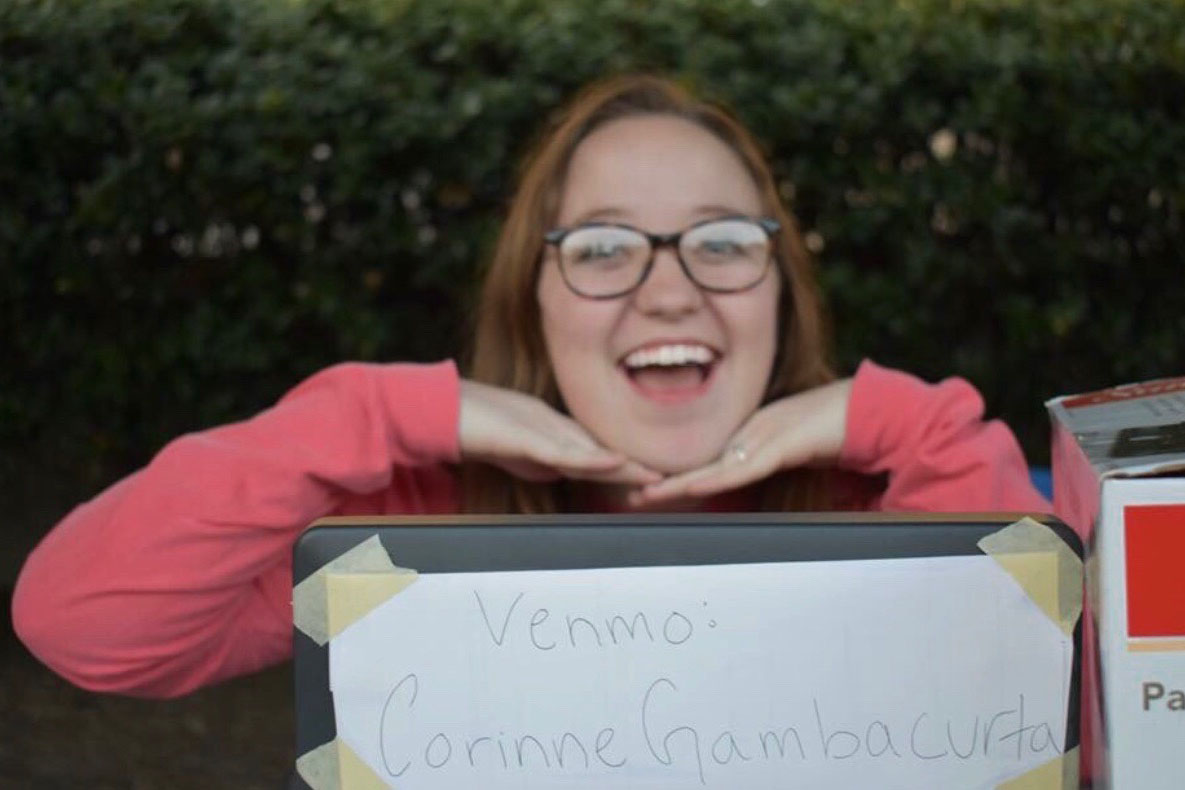 Venmo:
Corinne Gambacurta
Pa